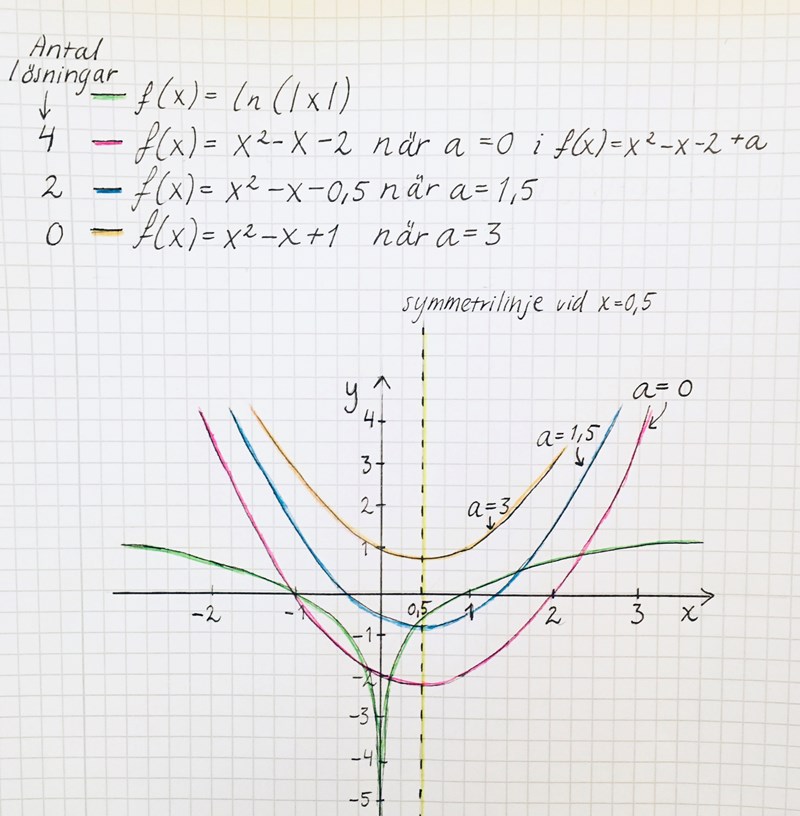 Antal
lösningar
↓
f(x) = ln(|x|)
4 f(x) = x²-x-2 när a=0 i f(x)=x²-x-2+a
2 f(x) = x²-x-0,5 när a=1,5
0 f(x)=x²-x+1 när a=3
symmetrilinje vid x=0,5
y
a=0
a=1,5
a=3
4
3
2
1
-2 -1 0,5 1 2 3 x
-1
-2
-3
-4
-5